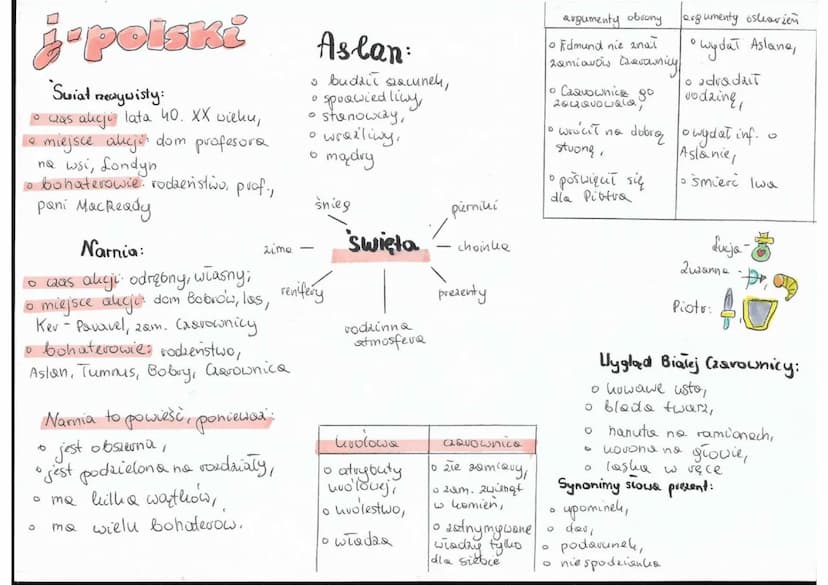 j-polski
Świat rzeczywisty:
czas akcji: lata 40. XX wieku,
miejsce akcji: dom profesora
na wsi, Londyn
bohaterowie: rodzeństwo, prof.,
pani MacReady
Narnia:
czas akcji: odrębny, własny;
miejsce akcji: dom Bobrów, las,
Ker-Paravel, zam. Czarownicy
bohaterowie: rodzeństwo,
Aslan, Tumnus, Bobry, Czarownica
Narnia to powieść, ponieważ:
jest obszerna,
jest podzielona na rozdziały,
ma kilka wątków,
ma wielu bohaterów.
Aslan:
budził szacunek,
sprawiedliwy,
stanowczy,
wrażliwy,
mądry
święta
śnieg
pierniki
zima
choinka
renifery
prezenty
rodzinna
atmosfera
królowa
atrybuty
królowej,
królestwo,
władza
czarownica
złe zamiary,
zam. zwierząt
w kamień,
zatrzymywanie
władzy tylko
dla siebie
argumenty obrony
Edmund nie znał
zamiarów Czarownicy
Czarownica go
zaczarowała,
wrócił na dobrą
stronę,
poświęcił się
dla Piotra
argumenty oskarżeń
wydał Aslana,
zdradził
rodzinę,
wydał inf. o
Aslanie,
śmierć lwa
Łucja -
Zuzanna -
Piotr:
Wygląd Białej Czarownicy:
krwawe usta,
blada twarz,
na ramionach,
korona na głowie,
laska w ręce
Synonimy słowa prezent:
upominek,
dar,
podarunek,
niespodzianka